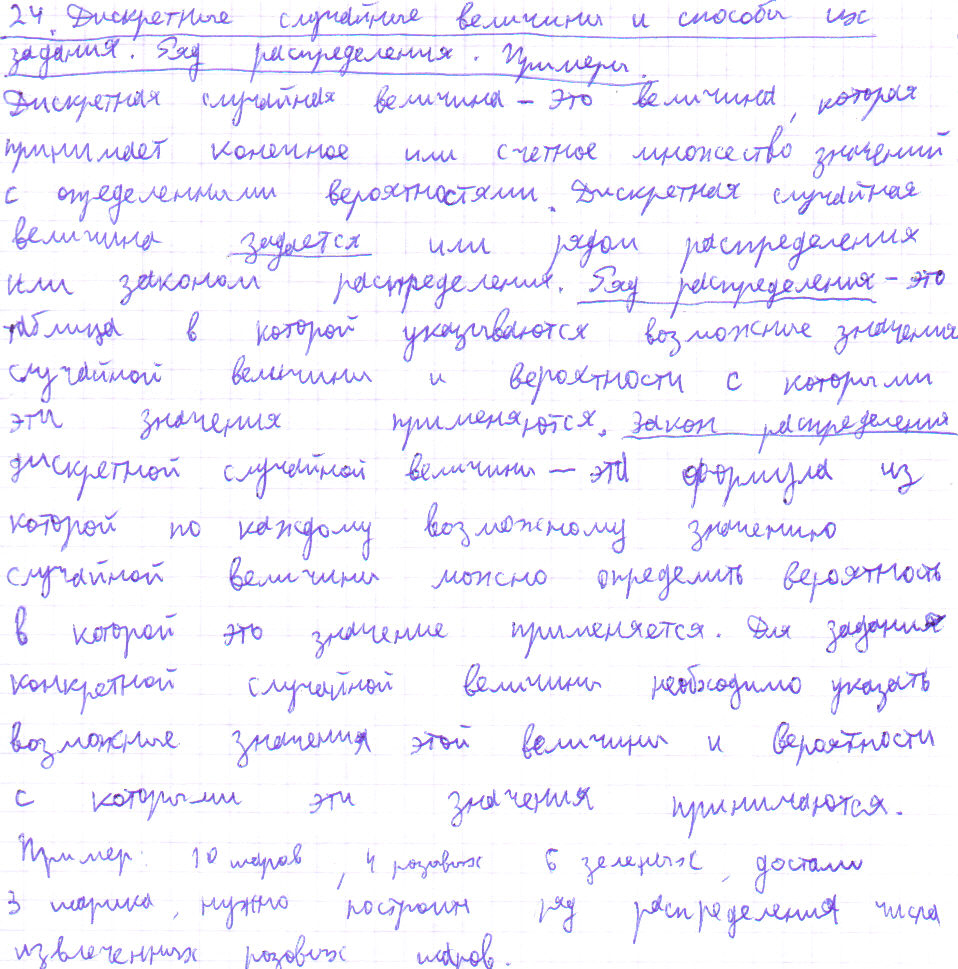 24. Дискретные случайные величины и способы их
задания. Ряд распределения. Примеры.
Дискретная случайная величина – это величина, которая
принимает конечное или счетное множество значений
с определенными вероятностями. Дискретная случайная
величина задается или рядом распределения
или законом распределения. Ряд распределения – это
таблица в которой указываются возможные значения
случайной величины и вероятности с которыми
эти значения применяются. Закон распределения
дискретной случайной величины – эта формула из
которой по каждому возможному значению
случайной величины можно определить вероятность
в которой это значение применяется. Для задания
конкретной случайной величины необходимо указать
возможные значения этой величины и вероятности
с которыми эти значения принимаются.
Пример: 10 шаров, 4 розовых 6 зеленых, достали
3 шарика, нужно построить ряд распределения числа
извлеченных розовых шаров.